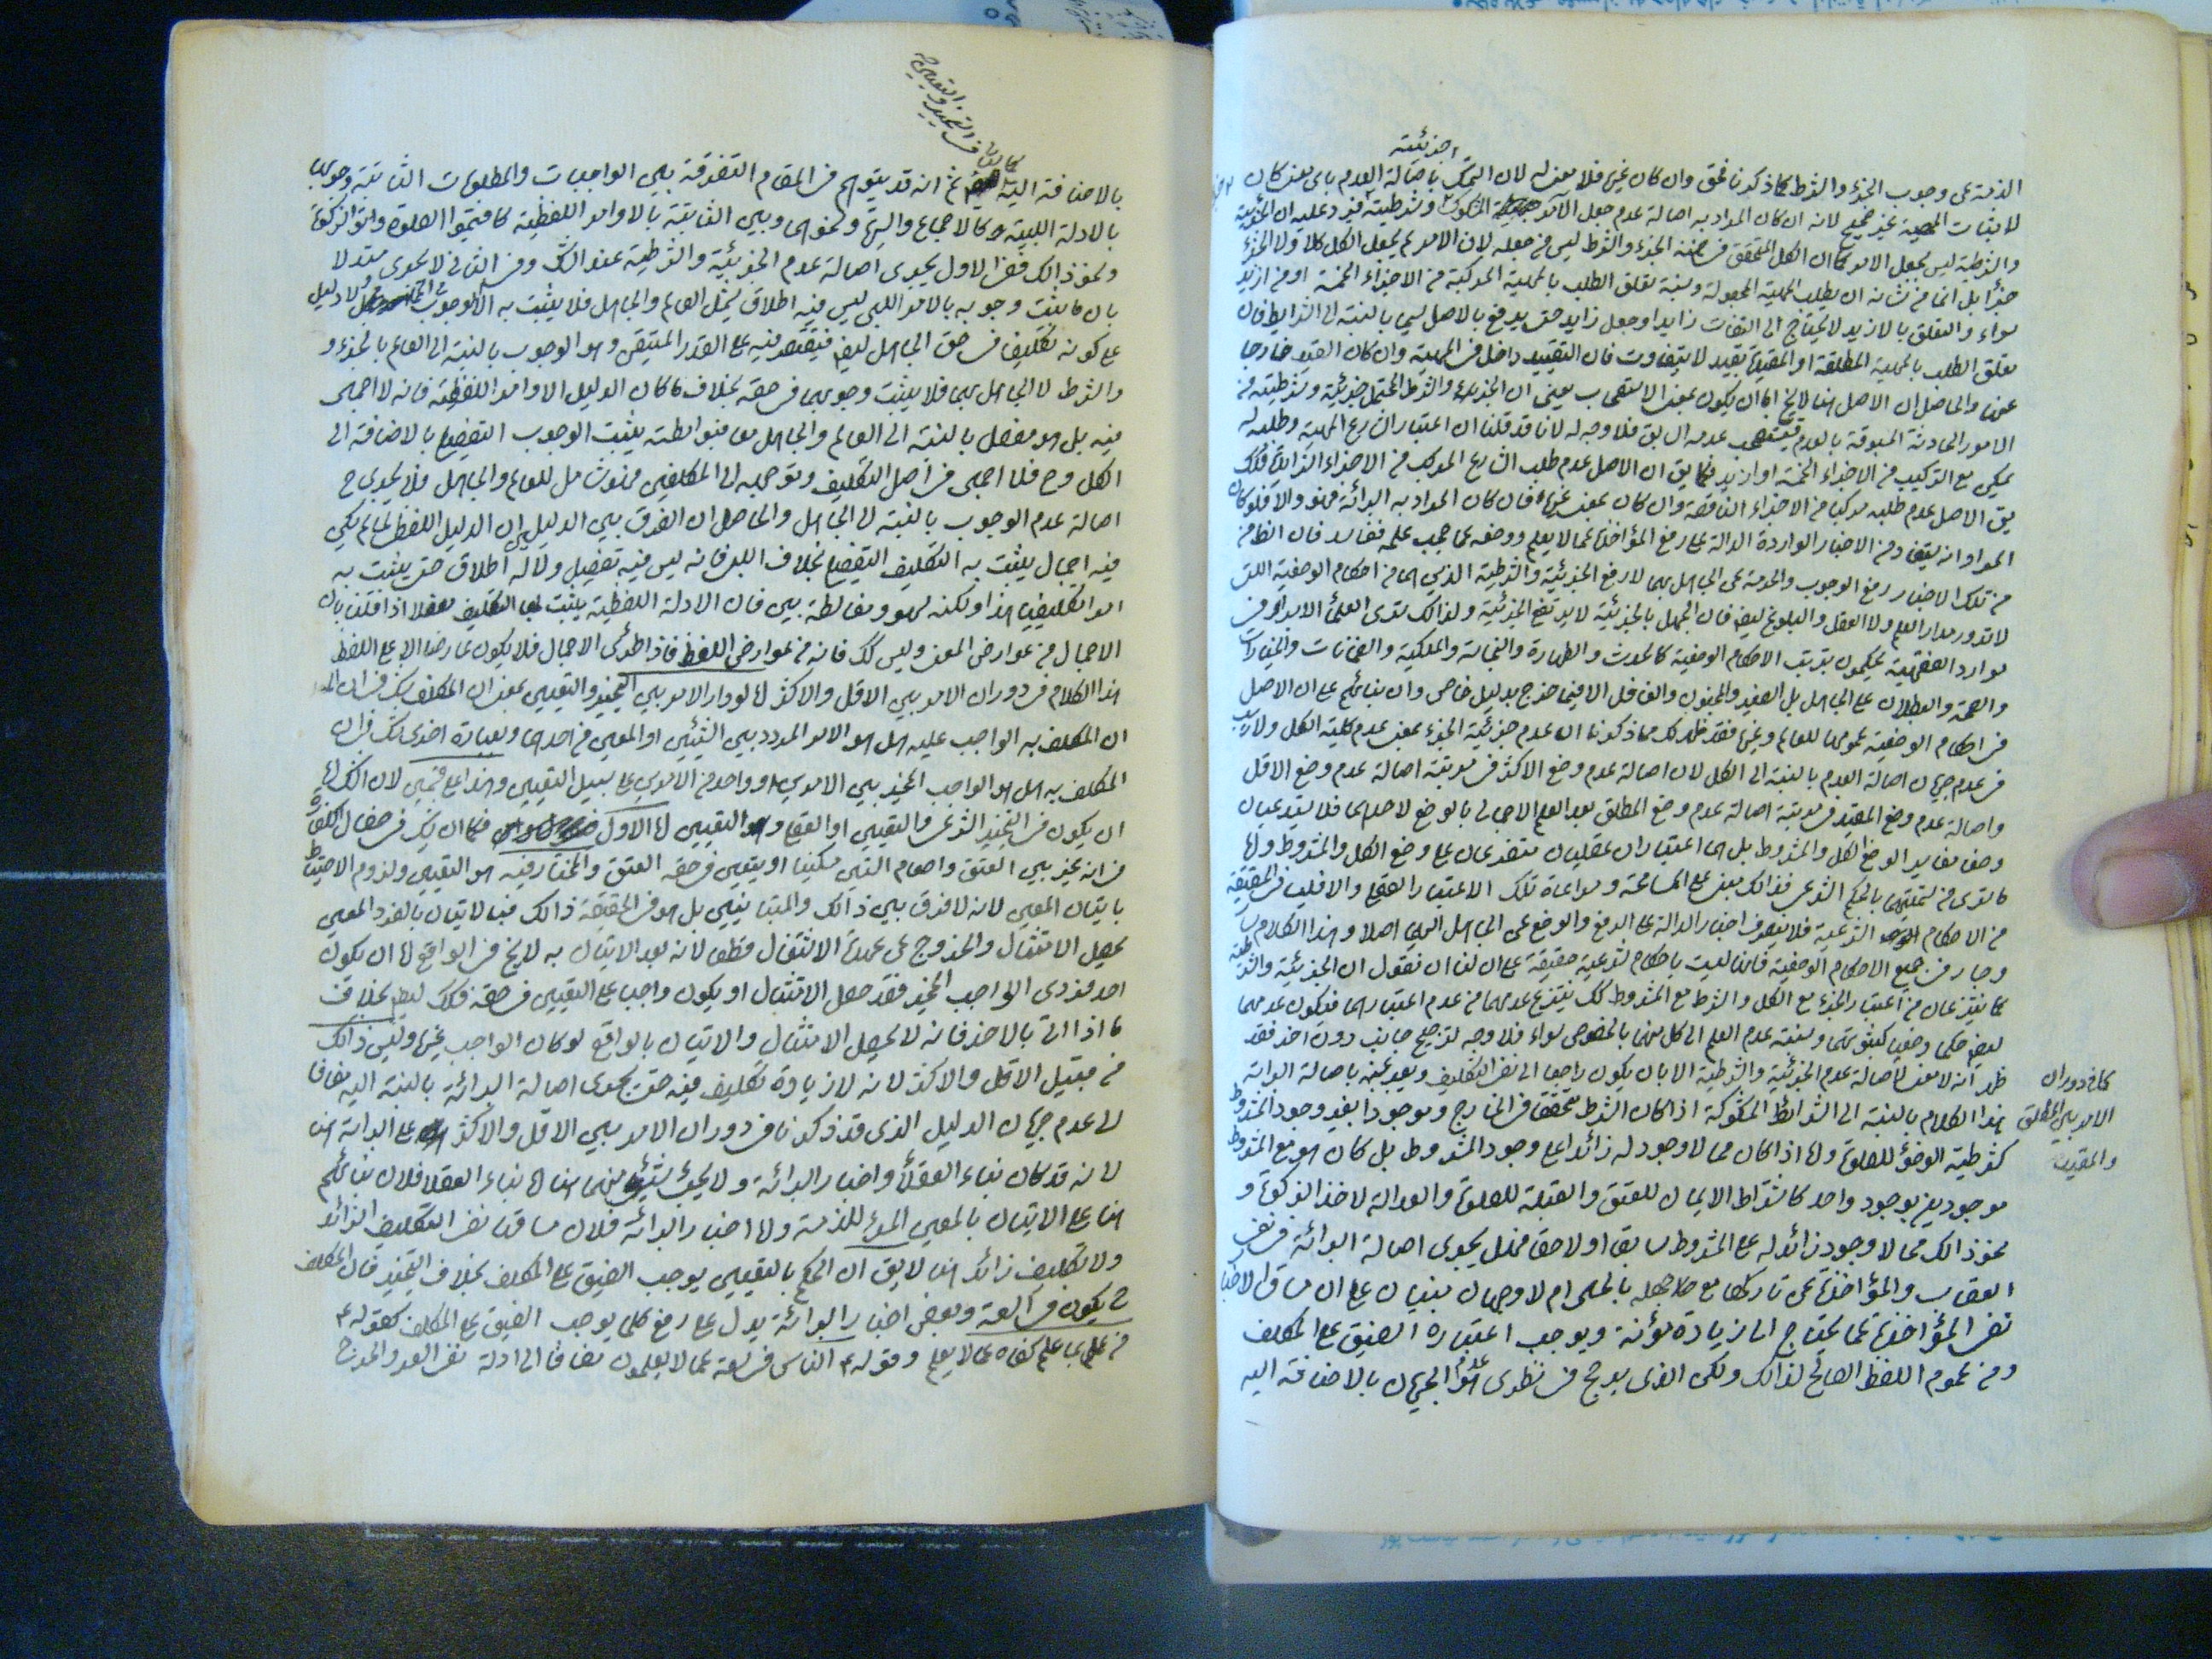 الذمة عن وجوب الجزء والشرط كما ذكرنا فحق وان كان غيره فلا معنى له لان التمسك باصالة العدم باى معنى كان
لاثبات غير صحيح لانه ان كان المراد به اصالة عدم جعل الامر المشكوك وشرطيته فيرد عليه ان الجزئية
والشرطية ليس بجعل الامر كما ان الكل المتحقق فى ضمنه الجزء والشرط ليس من جعله لان الامر لم يجعل الكل كلا ولا الجزء
جزأ بل انما من شانه ان يطلب المهية المجعولة ونسبة تعلق الطلب بالمهية المركبة من الاجزاء الخمسة او من ازيد
سواء والتعلق بالازيد لا يحتاج الى التفات زايد او جعل زايد حتى يدفع بالاصل ليس بالنسبة الى الشرايط فان
تعلق الطلب بالمهية المطلقة او المقيدة بقيد لا يتفاوت فان التقييد داخل فى المهية وان كان القيد خارجا
عنها والحاصل ان الاصل هنا لا يخ اما ان يكون بمعنى الاستصحاب يعنى ان الجزء والشرط المحتمل جزئيته وشرطيته من
الامور الحادثة المسبوقة بالعدم فيستصحب عدمه السابق فلا وجه له لانا قد قلنا ان اعتبار الشارع المهية وطلبه له
يمكن مع التركيب من الاجزاء الخمسة او ازيد فكما يق ان الاصل عدم طلب الشارع المركب من الاجزاء الزائدة فكك
يق الاصل عدم طلبه مركبا من الاجزاء الناقصة وان كان بمعنى غيره فان كان المراد به البرائة فهو والا فلو كان
المراد انه يستفاد من الاخبار الواردة الدالة على رفع المؤاخذة عما لا يعلم ووضعه عما حجب علمه ففاسد فان الظاهر من
من تلك الاخبار رفع الوجوب والحرمة عن الجاهل بهما لا رفع الجزئية والشرطية الذين هما من احكام الوضعية التى
لا تدور مدار العلم ولا العقل والبلوغ ايضا فان الجهل بالجزئية لا يرتفع الجزئية ولذلك ترى العلماء الابرار فى
موارد الفقهية يحكمون بترتب الاحكام الوضعية كالحدث والطهارة والنجاسة والملكية والضمانات والخيارات
والصحة والبطلان على الجاهل بل الصغير والمجنون والغافل الا فيما خرج بدليل خاص وان بنائهم على ان الاصل
فى احكام الوضعية عمومها للعالم وغيرها فقد ظهر لك مما ذكرنا ان عدم جزئية الجزء بمعنى عدم كلية الكل ولا ريب
فى عدم جريان اصالة العدم بالنسبة الى الكل لان اصالة عدم وضع الاكثر فى مرتبة اصالة عدم وضع الاقل
واصالة عدم وضع المقيد فى مرتبة اصالة عدم وضع المطلق بعد العلم الاجمالى بالوضع لاحدهما فلا يفيد عيان
وضعا مغاير الوضع الكل والمشروط بل هما اعتباران عقليان متفرعان على وضع الكل والمشروط واما
ما ترى من تسميتهما بالحكم الشرعى فذلك مبنى على المسامحة ومراعاة تلك الاعتبار العقلى والا فليسا فى الحقيقة
من الاحكام الشرعية فلا ينصرف اخبار الدالة على الرفع والوضع عن الجاهل اليهما اصلا وهذا الكلام سار
وجار فى جميع الاحكام الوضعية فانها ليست باحكام شرعية حقيقة على ان لنا ان نقول ان الجزئية والشرطية
كما ينتزعان من اعتبار الجزء مع الكل والشرط مع المشروط كك ينتزع عدمهما من عدم اعتبارهما فيكون عدمهما
ايضا حكما وضعيا كثبوتهما ونسبة عدم العلم الى كل منهما بالخصوص سواء فلا وجه لترجيح جانب دون اخر فقد
ظهر انه لا معنى لاصالة عدم الجزئية والشرطية الا بان يكون راجعا الى نفى التكليف ويعبر عنه باصالة البرائة
هذا الكلام بالنسبة الى الشرائط المشكوكة اذا كان الشرط متحققا فى الخارج وموجودا بغير وجود المشروط
كشرطية الوضوء للصلوة واما اذا كان مما لا وجود له زائدا على وجود المشروط بل كان هو مع المشروط
موجودين بوجود واحد كاشتراط الايمان للعتق والقبلة للصلوة والعدالة لاخذ الزكوة و
نحو ذلك مما لا وجود زائد له على المشروط سابقا او لاحقا فهل يجرى اصالة البرائة فى نفى
العقاب والمؤاخذة عن تاركها مع جهله بالحكم ام لا وجهان مبنيان على ان مساق الاخبار
نفى المؤاخذة عما يحتاج الى زيادة مؤنة ويوجب اعتباره الضيق على المكلف
ومن عموم اللفظ الصالح لذلك ولكن الذى يرجح فى نظرى هو عدم الجريان بالاضافة اليه
كما فى دوران
الامر بين المطلق
والمقيد
فى التخيير والتعيين
بالاضافة اليه ثم انه قد يتوهم فى المقام التفرقة بين الواجبات والمطلوبات الثابتة وجوبها
بالادلة اللبية كالاجماع والسيرة ونحوهما وبين الثابتة بالاوامر اللفظية كاقيموا الصلوة واتوا الزكوة
ونحو ذلك ففى الاول يجرى اصالة عدم الجزئية والشرطية عند الشك وفى الثانى لا يجرى مستدلا
بان ما يثبت وجوبه بالامر اللبى ليس فيه اطلاق يشمل العالم والجاهل فلا يثبت به الا الوجوب فى الجملة ولا دليل
على كونه تكليفا فى حق الجاهل ايضا فيقتصر فيه على القدر المتيقن وهو الوجوب بالنسبة الى العالم بالجزء و
والشرط لا الجاهل بهما فلا يثبت وجوبهما فى حقه بخلاف ما كان الدليل الاوامر اللفظية فانه لا اجمال
فيه بل هو مفصل بالنسبة الى العالم والجاهل معا فبواسطته يثبت الوجوب التفصيلى بالاضافة الى
الكل وح فلا اجمال فى اصل التكليف وتوجهه الى المكلفين فهو شامل للعالم والجاهل فلا يجرى ح
اصالة عدم الوجوب بالنسبة الى الجاهل والحاصل ان الفرق بين الدليلين ان الدليل اللفظى لما لم يكن
فيه اجمال يثبت به التكليف التفصيلى بخلاف اللبى فانه ليس فيه تفصيل ولا له اطلاق حتى يثبت به
امرا تكليفيا هذا ولكنه سهو ومغالطة بين فان الادلة اللفظية يثبت بها التكليف مفصلا اذا قلنا بان
الاجمال من عوارض المعنى وليس كك فانه من عوارض اللفظ فاذا طرئ الاجمال فلا يكون عارضا الا على اللفظ
هذا الكلام فى دوران الامر بين الاقل والاكثر اما لو دار الامر بين التخيير والتعيين بمعنى ان المكلف شك فى ان
ان المكلف به الواجب عليه هل هو الامر المردد بين الشيئين او المعين من احدهما وبعبارة اخرى شك فى ان
المكلف به هل هو الواجب المخير بين الامرين او واحد من الامرين على سبيل التعيين وهذا على قسمين لان الشك اما
ان يكون فى التخيير الشرعى والتعيين او العقلى والتعيين اما الاول فكما ان شك فى خصال الكفارة
فى انه مخير بين العتق واطعام الستين مسكينا او يتعين فى حقه العتق والمختار فيه هو التعيين ولزوم الاحتياط
باتيان المعين لانه لا فرق بين ذلك والمتباينين بل هو فى الحقيقة ذلك فبالاتيان بالفرد المعين
يحصل الامتثال والخروج عن عهدة الاشتغال قطعا لانه بعد الاتيان به لا يخ فى الواقع اما ان يكون
احد فردى الواجب المخير فقد حصل الامتثال او يكون واجبا على التعيين فى حقه فكك ايضا بخلاف
ما اذا اتى بالاخر فانه لا يحصل الامتثال والاتيان بالواقع لو كان الواجب غيرها وليس ذلك
من قبيل الاقل والاكثر لانه لا زيادة تكليف فيه حتى يجرى اصالة البرائة بالنسبة اليه مضافا
الى عدم جريان الدليل الذى قد ذكرنا فى دوران الامر بين الاقل والاكثر على البرائة هنا
لانه قد كان بناء العقلاء واخبار البرائة ولا يجرى شيئ منهما هنا اما بناء العقلا فلان بنائهم
هنا على الاتيان بالمعين المبرء للذمة واما اخبار البرائة فلان مساقها نفى التكليف الزائد
ولا تكليف زائد هنا لا يق ان الحكم بالتعيين يوجب الضيق على المكلف بخلاف التخيير فان المكلف
ح يكون فى السعة وبعض اخبار البرائة يدل على رفع كلما يوجب الضيق على المكلف كقوله ع
من عمل بما علم كفاه عما لا يعلم وقوله ع الناس فى سعة مما لا يعلمون مضافا الى ادلة نفى العسر والحرج